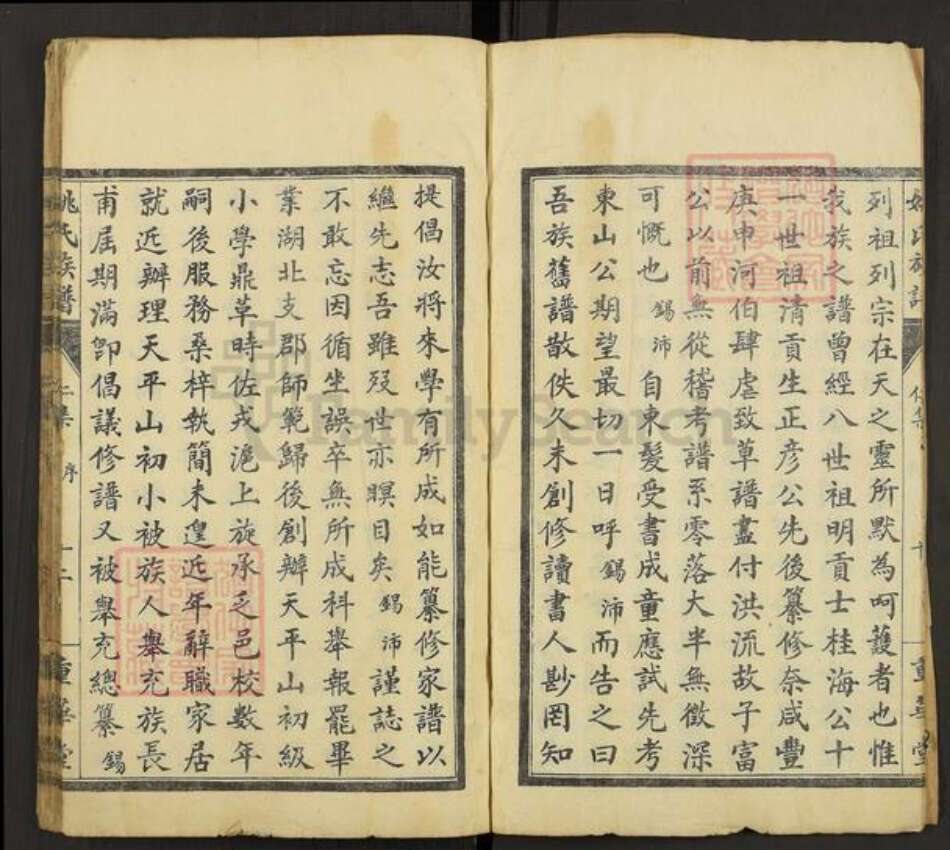 列祖列宗在天之靈所默為呵護者也惟
我族之譜曾經八世祖明貢士桂海公十
一世祖清貢生正彥公先後纂修奈咸豐
庚申河伯肆虐致草譜盡付洪流故子富
公以前無從稽考譜系零落大半無徵深
可慨也錫沛自束髮受書成童應試先考
東山公期望最切一日呼錫沛而告之曰
吾族舊譜散佚久未創修讀書人尠罔知
姚氏族譜 仁集 序 十二 重華堂
提倡汝將來學有所成如能纂修家譜以
繼先志吾雖歿世亦瞑目矣錫沛謹誌之
不敢忘因循坐誤卒無所成科舉報罷畢
業湖北支郡師範歸後創辦天平山初級
小學鼎革時佐戎滬上旋承乏邑校數年
嗣後服務桑梓執簡未遑近年辭職家居
就近辦理天平山初小被族人舉充族長
甫屆期滿卽倡議修譜又被舉充總纂錫
FamilySearch